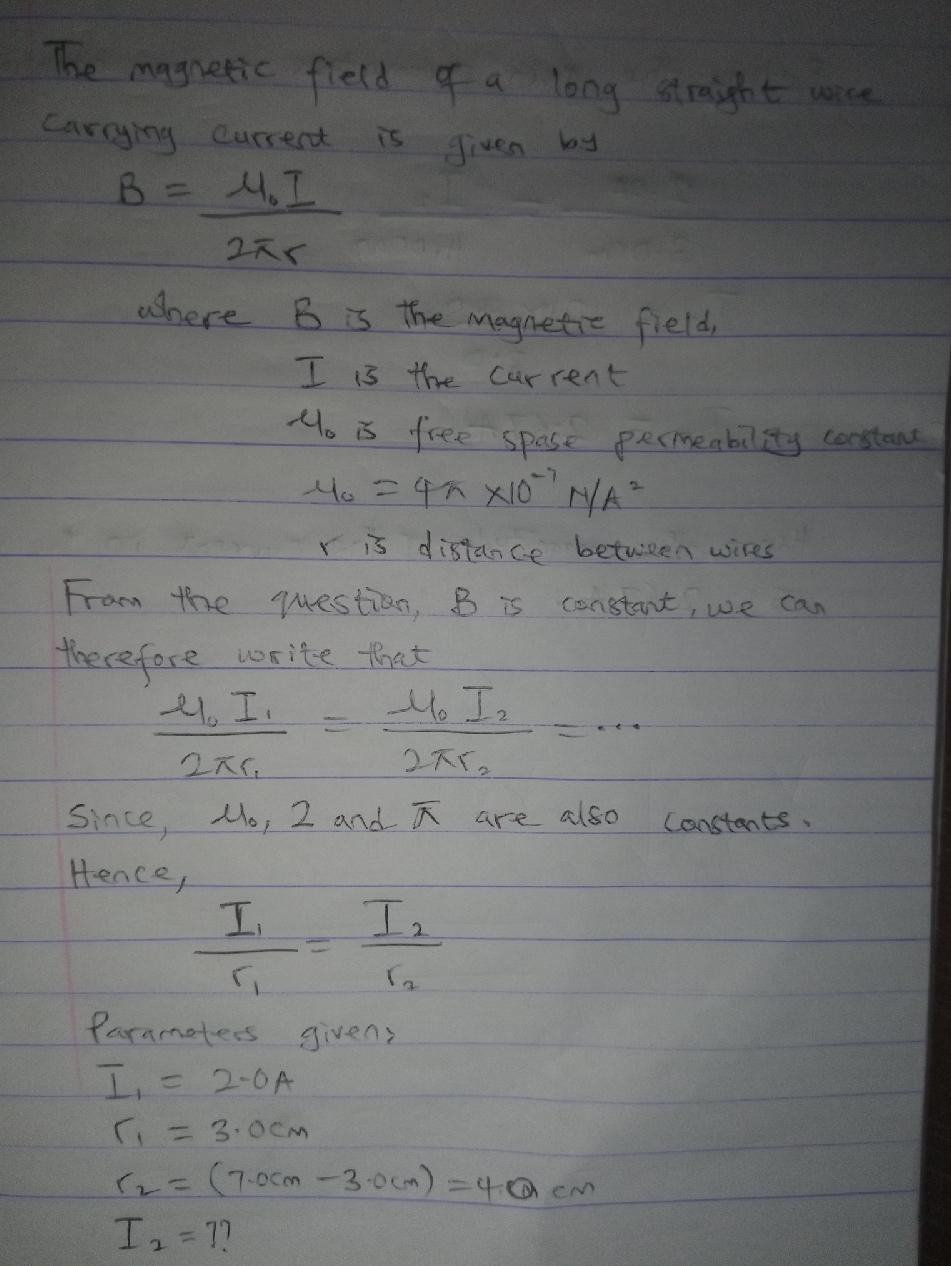 The magnetic field of a long straight wire
carrying current is given by
B = μ₀I
2πr
where B is the magnetic field,
I is the current
μ₀ is free spase permeability constant
μ₀ = 4π x10⁻⁷ N/A²
r is distance between wires
From the question, B is constant, we can
therefore write that
μ₀ I₁ = μ₀ I₂ = ...
2πr₁ 2πr₂
Since, μ₀, 2 and π are also constants.
Hence,
I₁ = I₂
r₁ r₂
Parameters given;
I₁ = 2.0A
r₁ = 3.0cm
r₂ = (7.0cm - 3.0cm) = 4.0 cm
I₂ = ??